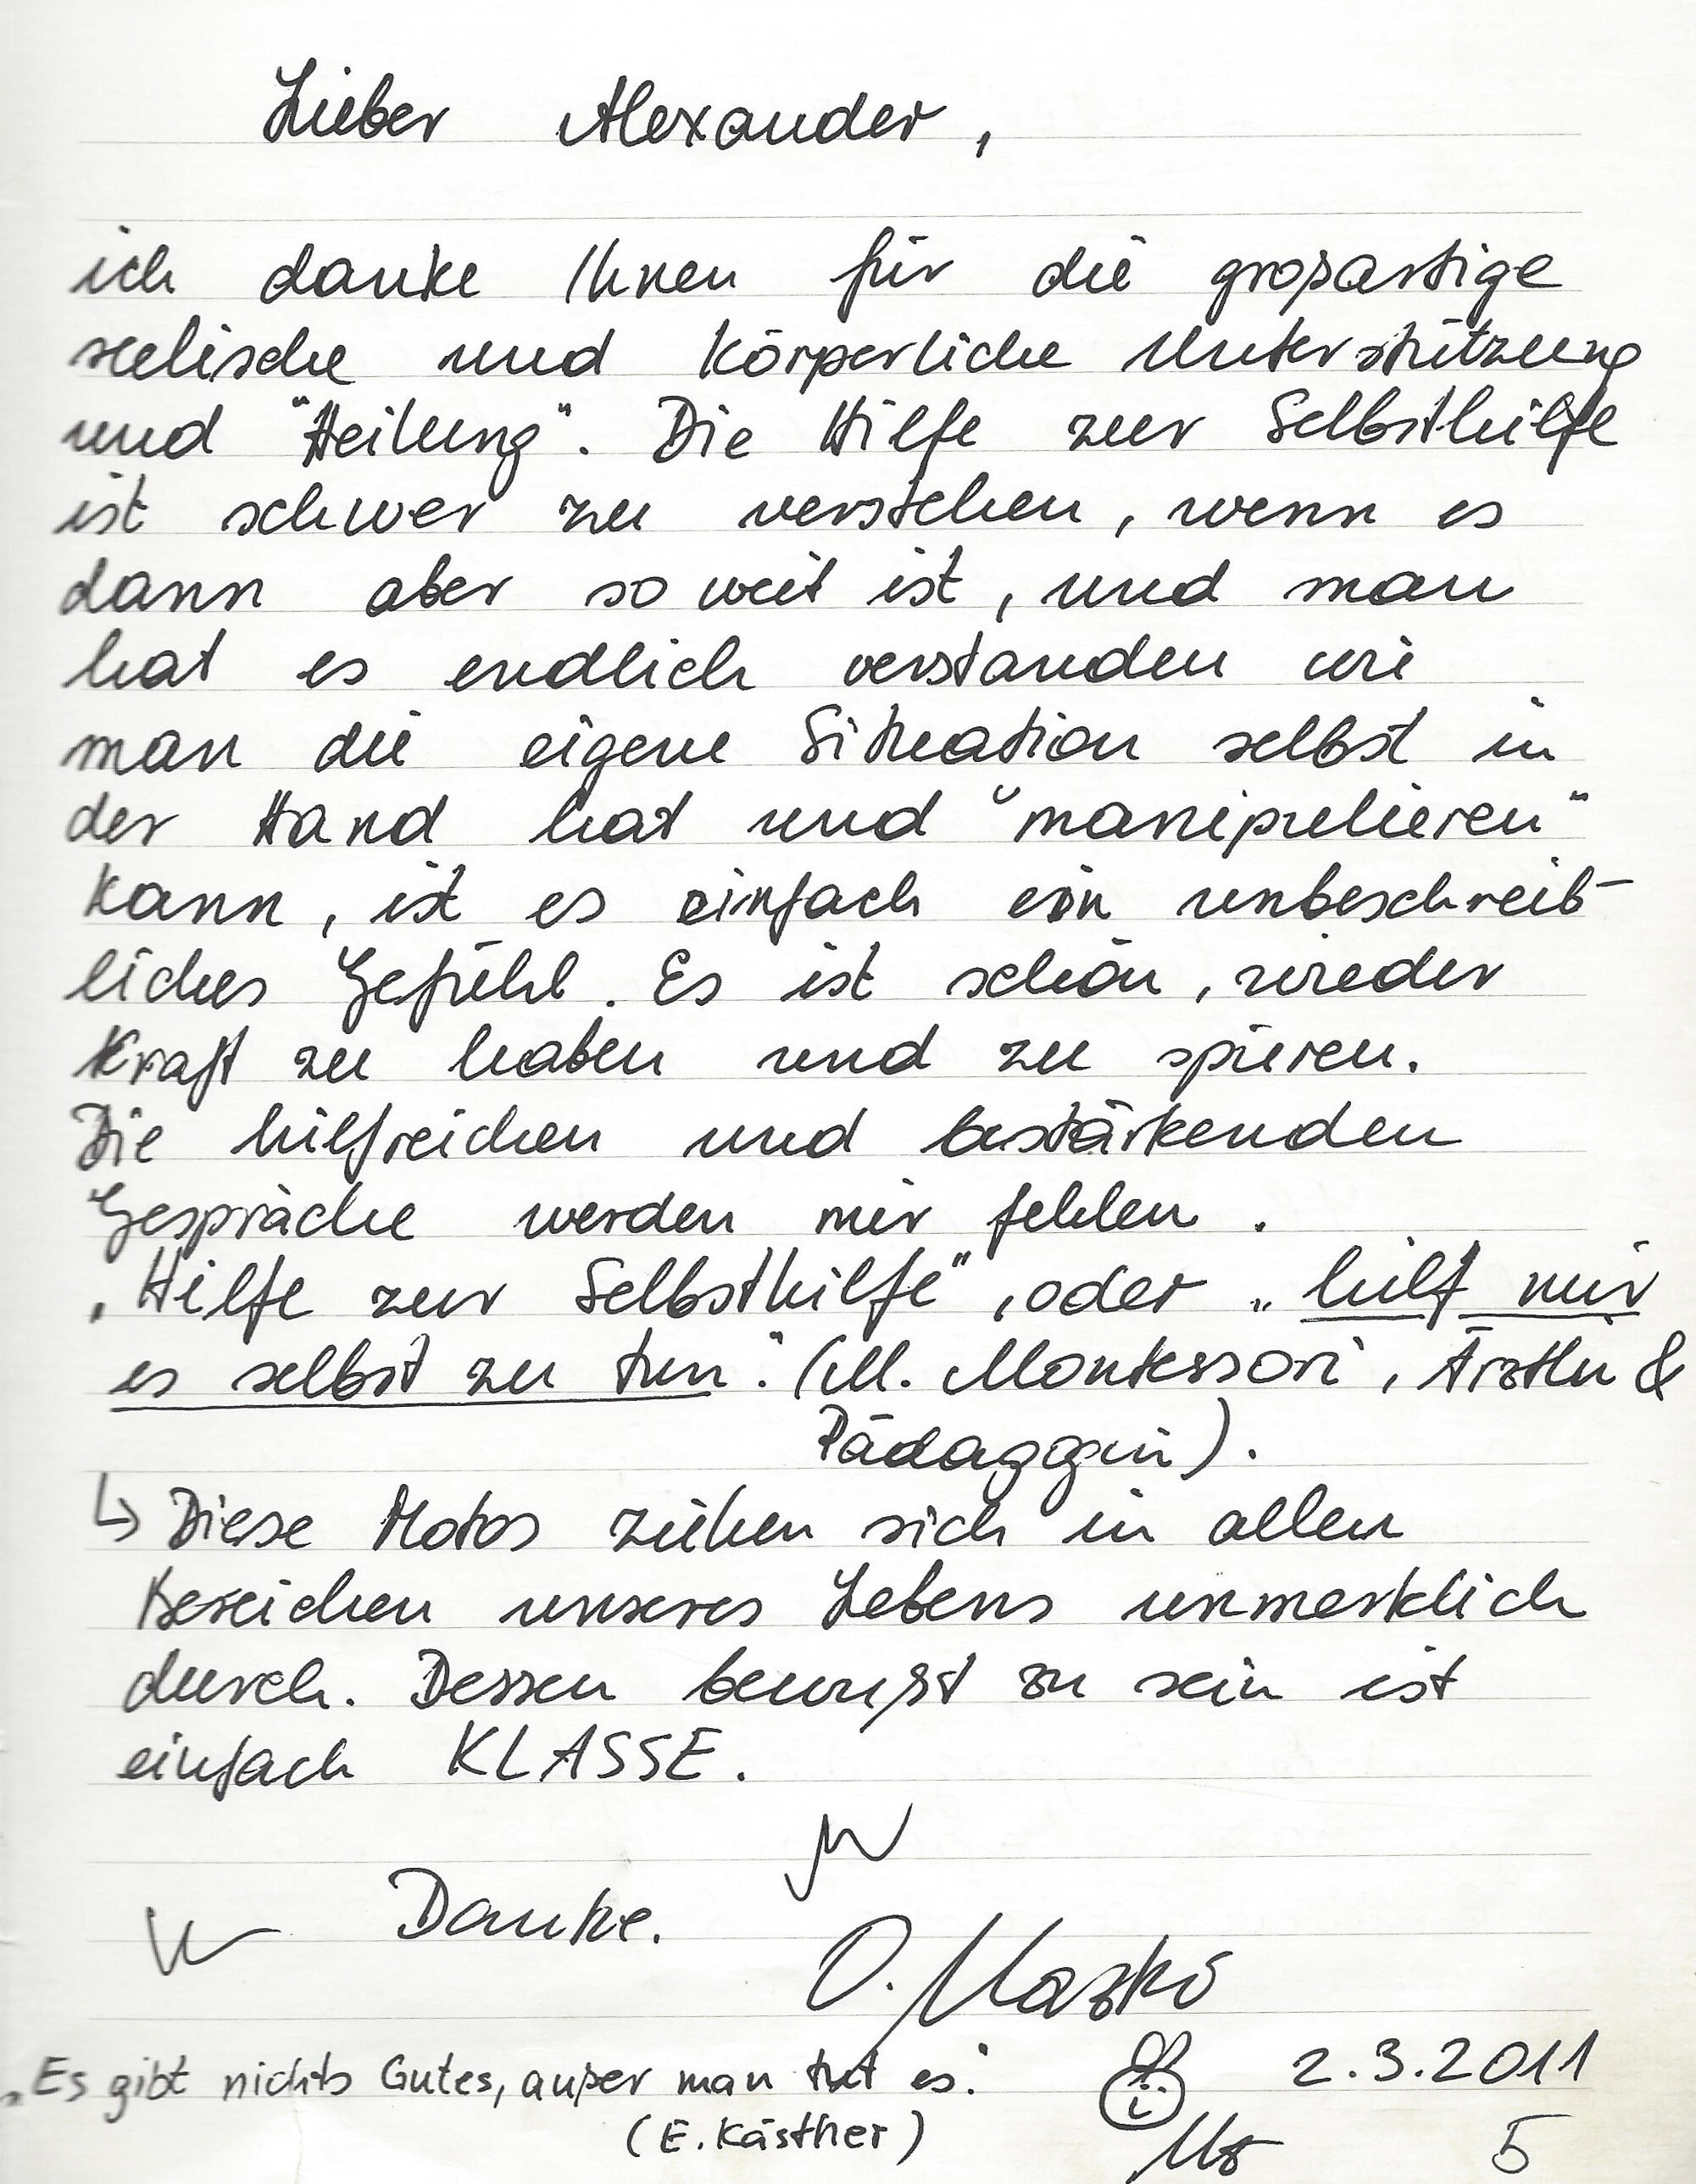 Lieber Alexander,
ich danke Ihnen für die großartige
seelische und körperliche Unterstützung
und "Heilung". Die Hilfe zur Selbsthilfe
ist schwer zu verstehen, wenn es
dann aber so weit ist, und man
hat es endlich verstanden wie
man die eigene Situation selbst in
der Hand hat und "manipulieren"
kann, ist es einfach ein unbeschreib-
liches Gefühl. Es ist schön, wieder
Kraft zu haben und zu spüren.
Die hilfreichen und bestärkenden
Gespräche werden mir fehlen.
„Hilfe zur Selbsthilfe", oder „hilf mir
es selbst zu tun." (M. Montessori, Ärztin &
Pädagogin).
↳ Diese Motos ziehen sich in allen
Bereichen unseres Lebens unmerklich
durch. Dessen bewußt zu sein ist
einfach KLASSE.
Danke.
O.
„Es gibt nichts Gutes, außer man tut es."
2.3.2011
(E. Kästner)
5